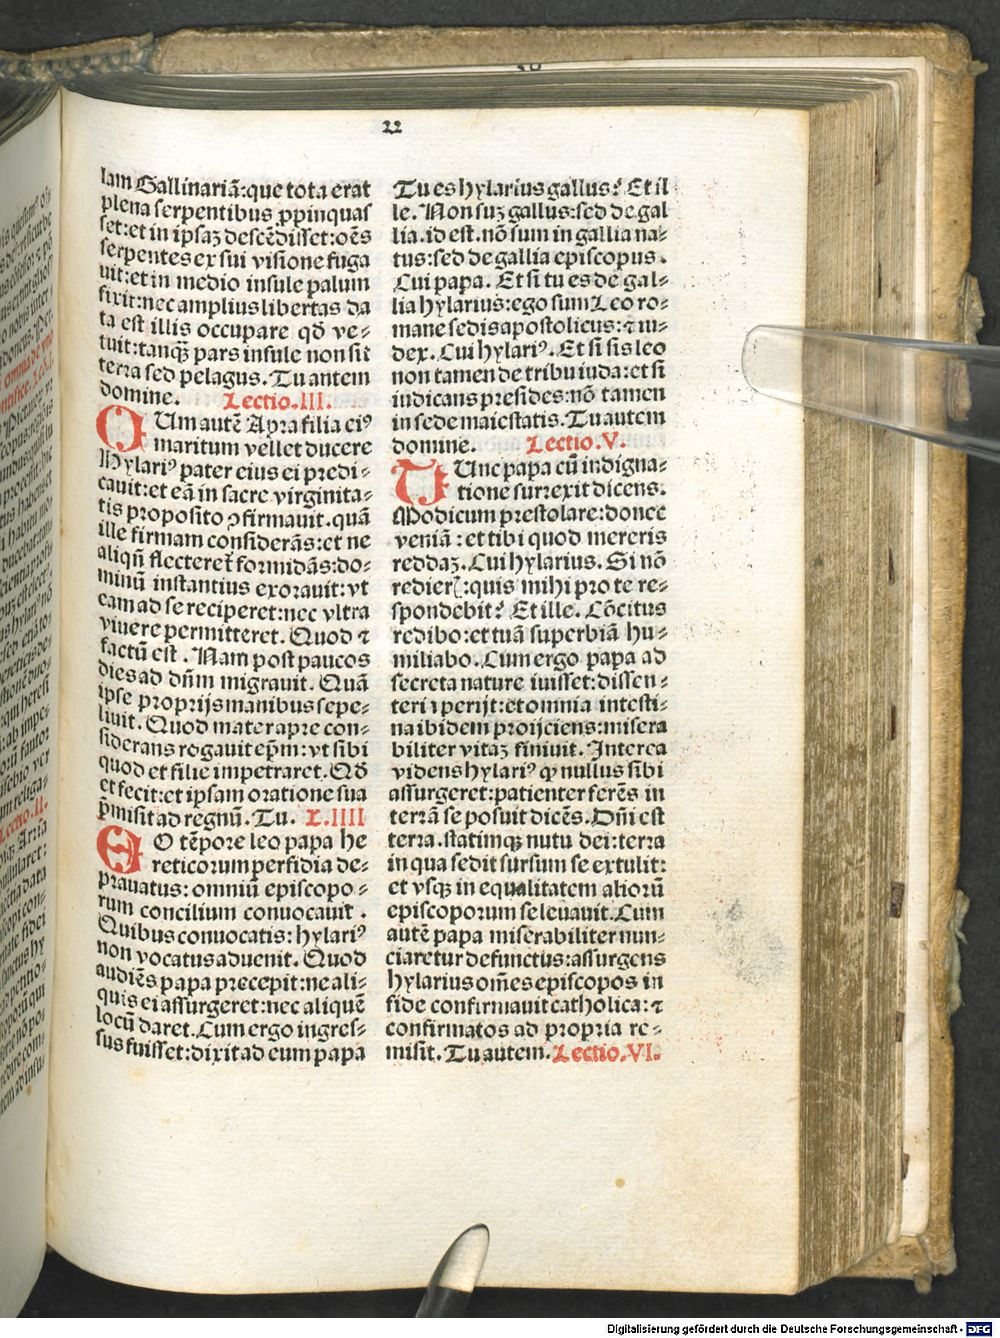 22
lam Gallinariā:que tota erat
plena serpentibus ꝓpinquas
set:et in ipsaꝫ descēdisset:oēs
serpentes ex sui visione fuga
uit:et in medio insule palum
fixit:nec amplius libertas da
ta est illis occupare qđ ve⸗
tuit:tanqꝫ pars insule non sit
terra sed pelagus. Tu autem
domine. Lectio.III.
CUm autē Apra filia eiꝰ
maritum vellet ducere
Hylariꝰ pater eius ei predi⸗
cauit:et eā in sacre virginita⸗
tis proposito ꝯfirmauit. quā
ille firmam considerās:et ne
aliqn̄ flecteret̄ formidās:do⸗
minū instantius exorauit:vt
eam ad se reciperet:nec vltra
viuere permitteret. Quod ⁊
factū est. Nam post paucos
dies ad dn̄m migrauit. Quā
ipse proprijs manibus sepe⸗
liuit. Quod mater apre con⸗
siderans rogauit ep̄m:vt sibi
quod et filie impetraret. Qđ
et fecit:et ipsam oratione sua
p̄misit ad regnū. Tu. L.IIII
EO tēpore leo papa he
reticorum perfidia de⸗
prauatus: omniū episcopo⸗
rum concilium conuocauit.
Quibus conuocatis: hylariꝰ
non vocatus aduenit. Quod
audiēs papa precepit:ne ali⸗
quis ei assurgeret:nec aliquē
locū daret. Cum ergo ingres⸗
sus fuisset:dixit ad eum papa
Tu es hylarius gallus? Et il
le. Non suꝫ gallus:sed de gal
lia.id est.nō sum in gallia na⸗
tus:sed de gallia episcopus.
Cui papa. Et si tu es de gal⸗
lia hylarius:ego sum Leo ro⸗
mane sedis apostolicus:⁊ iu⸗
dex. Cui hylariꝰ. Et si sis leo
non tamen de tribu iuda:et si
iudicans presides:nō tamen
in sede maiestatis. Tu autem
domine. Lectio.V.
TUnc papa cū indigna⸗
tione surrexit dicens.
Modicum prestolare:donec
veniā:et tibi quod mereris
reddaꝫ. Cui hylarius. Si nō
redierꝭ:quis mihi pro te re⸗
spondebit? Et ille. Cōcitus
redibo:et tuā superbiā hu⸗
miliabo. Cum ergo papa ad
secreta nature iuisset:dissen⸗
teri ı perijt:et omnia intesti⸗
na ibidem proijciens:misera
biliter vitaꝫ finiuit. Interea
videns hylariꝰ ꝙ nullus sibi
assurgeret:patienter ferēs in
terrā se posuit dicēs. Dn̄i est
terra. statimqꝫ nutu dei:terra
in qua sedit sursum se extulit:
et vsqꝫ in equalitatem aliorū
episcoporum se leuauit. Cum
autē papa miserabiliter nun⸗
ciaretur defunctus:assurgens
hylarius om̄es episcopos in
fide confirmauit catholica:⁊
confirmatos ad propria re⸗
misit. Tu autem. Lectio.VI.
Digitalisierung gefördert durch die Deutsche Forschungsgemeinschaft - DFG